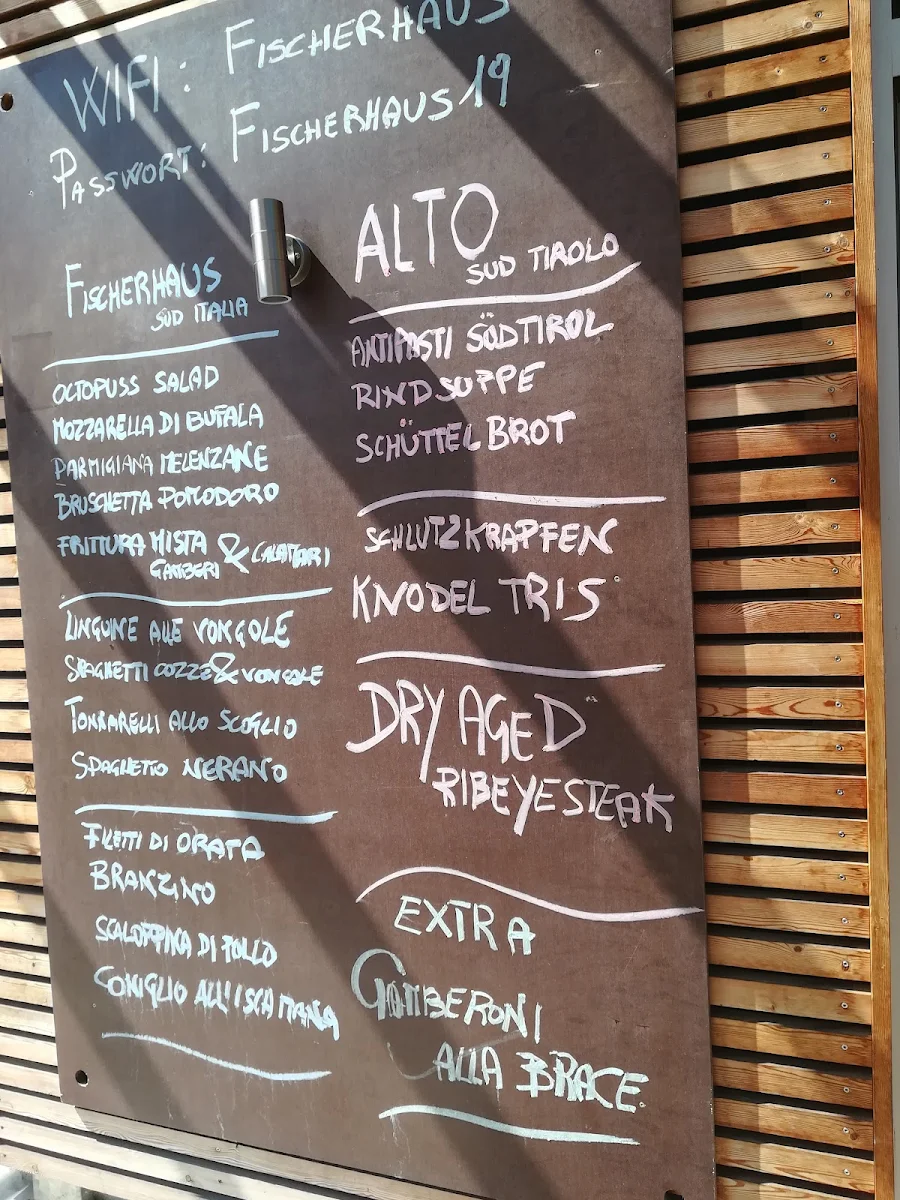 WIFI: FISCHERHAUS
PASSWORT: FISCHERHAUS19
FISCHERHAUS
SÜD ITALIA
OCTOPUSS SALAD
MOZZARELLA DI BUFALA
PARMIGIANA MELENZANE
BRUSCHETTA POMODORO
FRITTURA MISTA
GAMBERI & CALAMARI
LINGUINE ALLE VONGOLE
SPAGHETTI COZZE & VONGOLE
TONNARELLI ALLO SCOGLIO
SPAGHETTO NERANO
FILETTI DI ORATA
BRANZINO
SCALOPPINA DI POLLO
CONIGLIO ALL'ISCHITANA
ALTO
SUD TIROLO
ANTIPASTI SÜDTIROL
RINDSUPPE
SCHÜTTELBROT
SCHLUTZKRAPFEN
KNODEL TRIS
DRY AGED
RIBEYESTEAK
EXTRA
GAMBERONI
ALLA BRACE